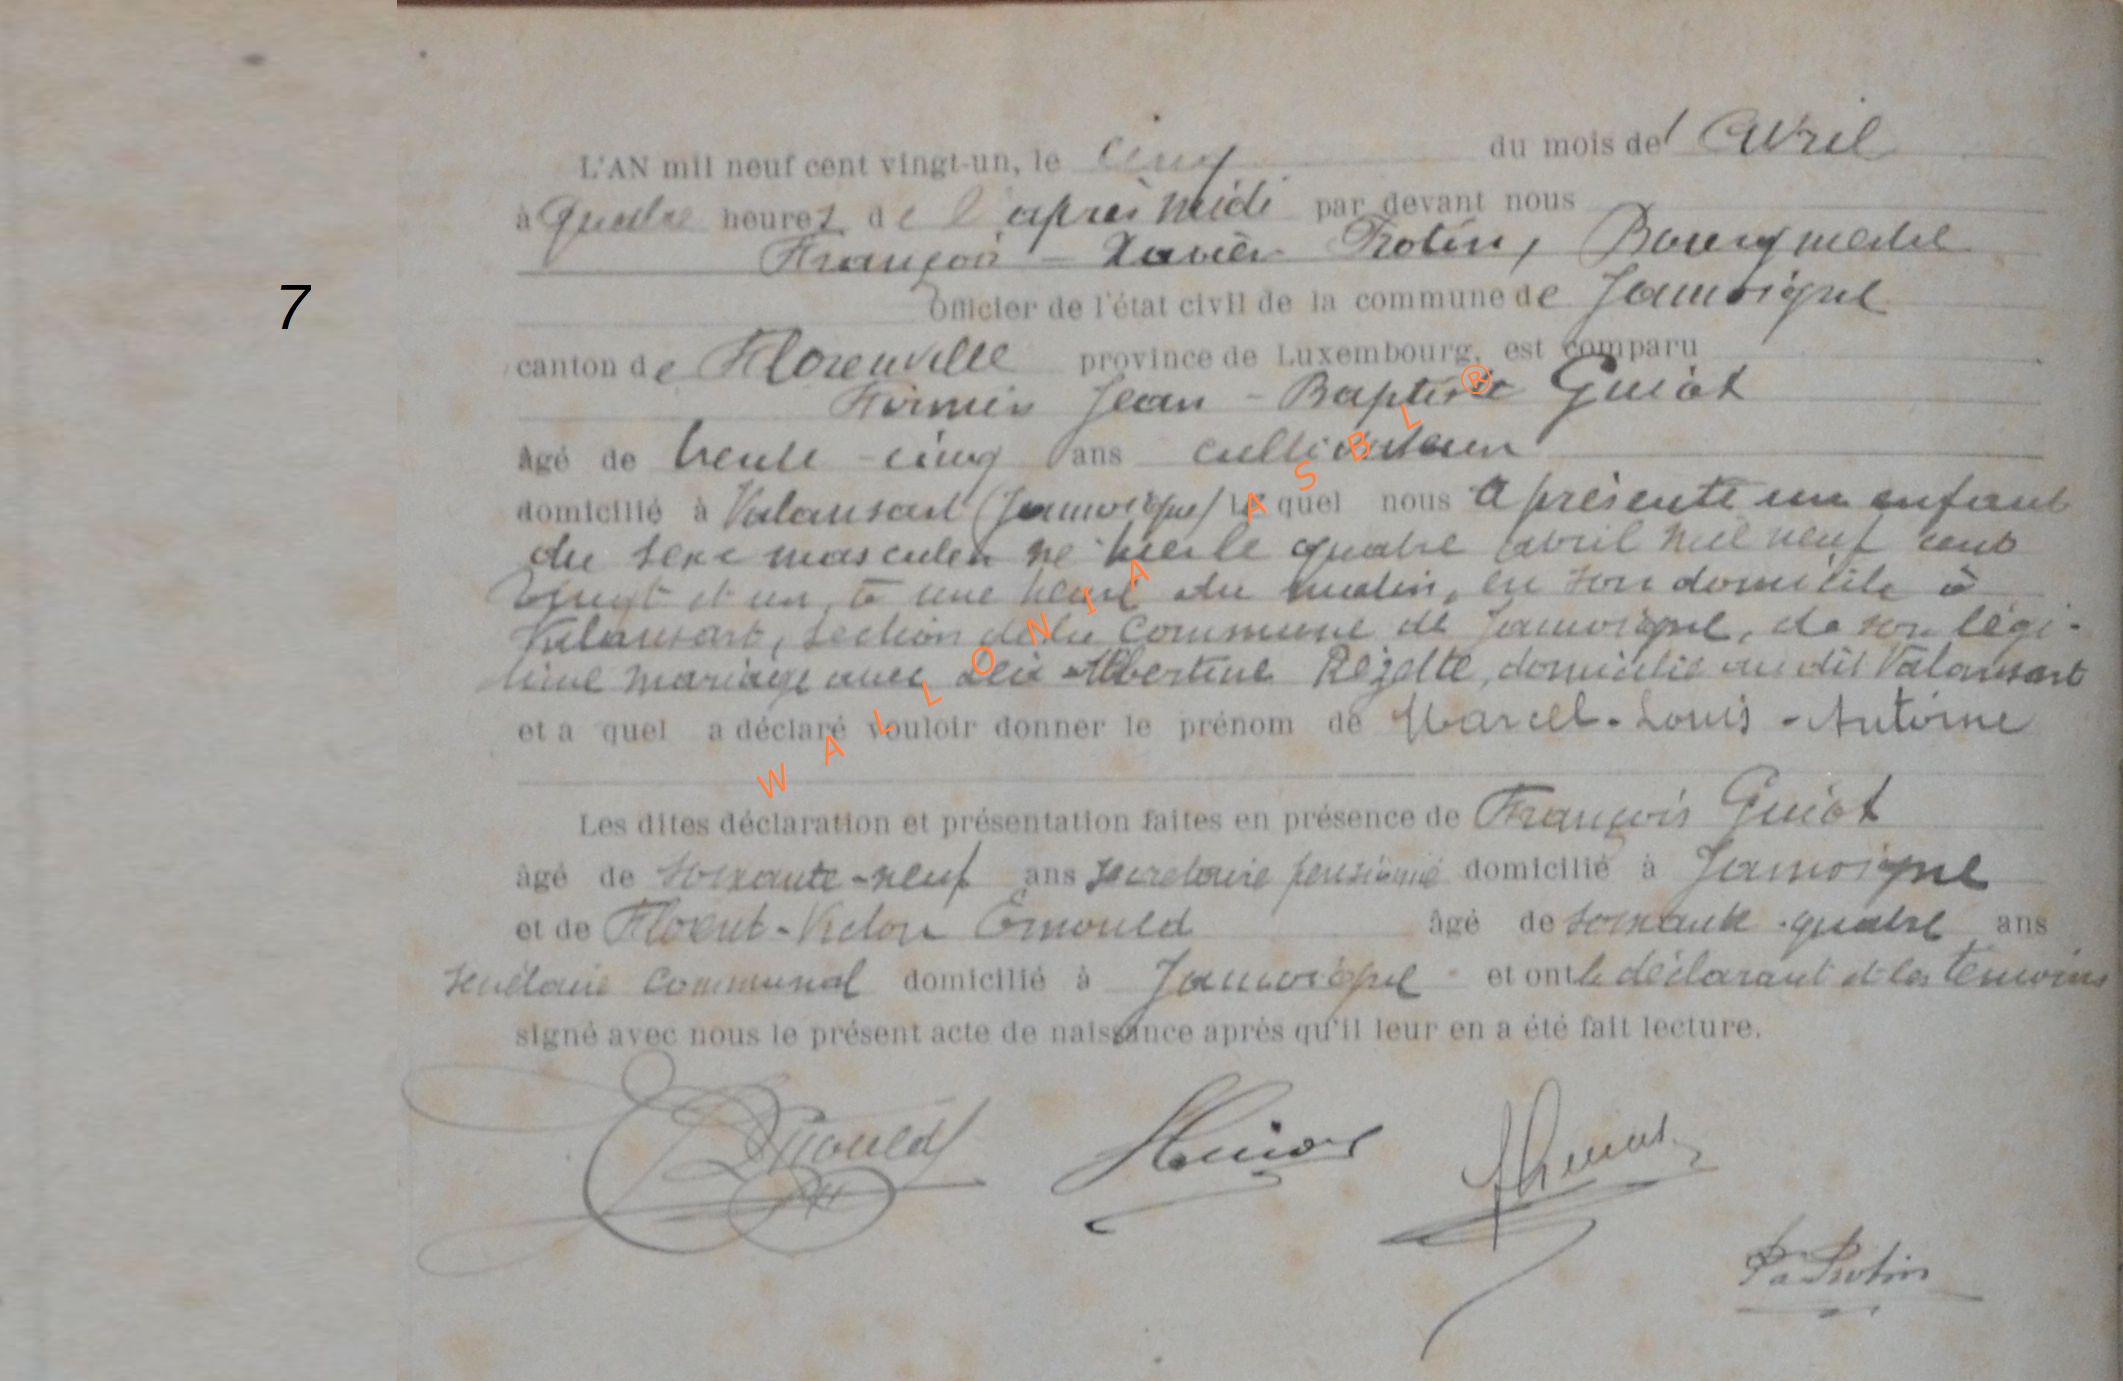 7
L'AN mil neuf cent vingt-un, le cinq du mois d' avril
à Quatre heures de l'après midi par devant nous
François - Xavier Protin, Bourgmestre
officier de l'état civil de la commune de Jamoigne
canton de Florenville province de Luxembourg, est comparu
Firmin Jean - Baptiste Guiot
âgé de trente - cinq ans cultivateur
domicilié à Valansart (Jamoigne) lequel nous a présenté un enfant
du sexe masculin né hier le quatre avril mil neuf cent
vingt et un, à une heure du matin, en son domicile à
Valansart, section de la commune de Jamoigne, de son légi-
time mariage avec Albertine Rézette, domiciliée au dit Valansart
et a quel a déclaré vouloir donner le prénom de Marcel - Louis - Antoine
Les dites déclaration et présentation faites en présence de François Guiot
âgé de soixante-neuf ans secrétaire pensionné domicilié à Jamoigne
et de Florent-Victor Ernould âgé de soixante-quatre ans
secrétaire communal domicilié à Jamoigne et ont le déclarant et les témoins
signé avec nous le présent acte de naissance après qu'il leur en a été fait lecture.
Ernould Guiot
Protin
WALLONIA ASBL ®